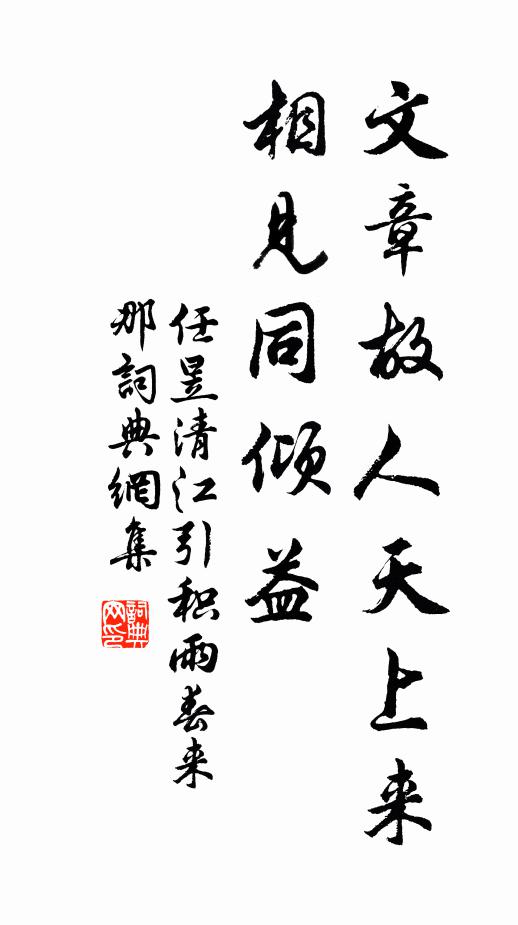 文章故人天上来
相見同倾益
任昱清江引积雨春来
那詞典網集
詞典网印